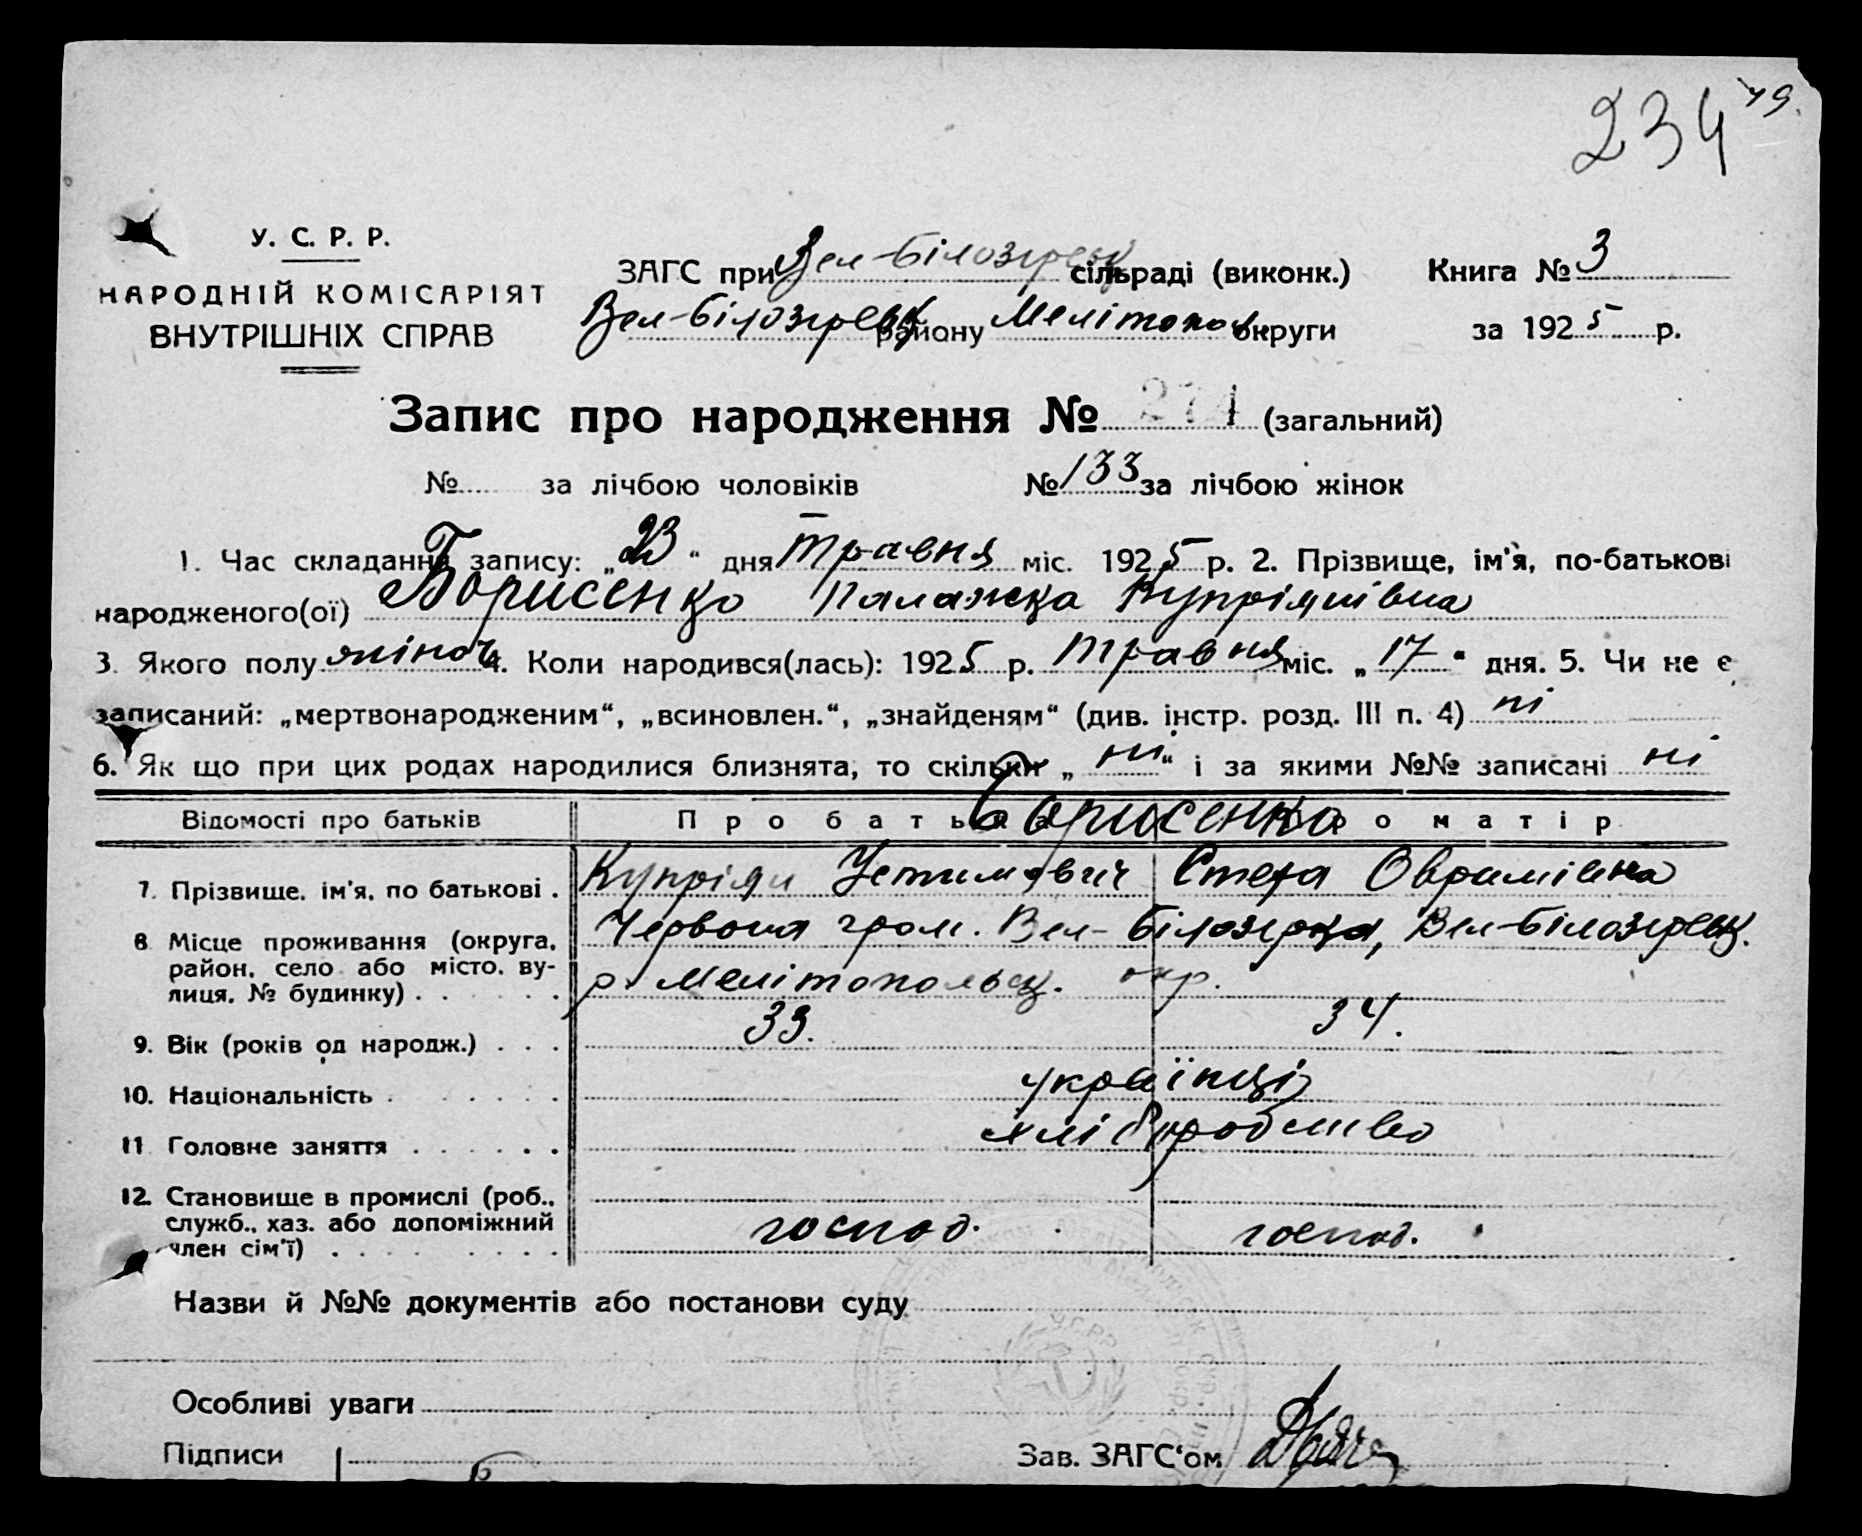 234 49.
У. С. Р. Р.
НАРОДНІЙ КОМІСАРІЯТ
ВНУТРІШНІХ СПРАВ
ЗАГС при Вел-Білозірськ сільраді (виконк.) Книга № 3
Вел-Білозірськ району Мелітопол. округи за 1925 р.
Запис про народження № 274 (загальний)
№ за лічбою чоловіків № 133 за лічбою жінок
1. Час складання запису: „23“ дня травня міс. 1925 р. 2. Прізвище, ім'я, по-батькові
народженого(ої) Борисенко Палажка Купріянівна
3. Якого полу жіноч. 4. Коли народився(лась): 1925 р. травня міс. „17“ дня. 5. Чи не є
записаний: „мертвонародженим“, „всиновлен.“, „знайденям“ (див. інстр. розд. III п. 4) ні
6. Як що при цих родах народилися близнята, то скільки „ні“ і за якими №№ записані ні
Відомості про батьків Про батька Про матір
Борисенко
7. Прізвище, ім'я, по батькові . Купріян Устимович Стеха Оврамівна
8. Місце проживання (округа, район, село або місто, вулиця, № будинку) . Червона гром. Вел-Білозірка, Вел-Білозірськ.
р. Мелітопольск. окр.
9. Вік (років од народж.) . . . 33. 34.
10. Національність . українці
11. Головне заняття . хліборобство
12. Становище в промислі (роб., служб., хаз. або допоміжний член сім'ї) . господ. господ.
Назви й №№ документів або постанови суду
Особливі уваги
Підписи Зав. ЗАГС'ом